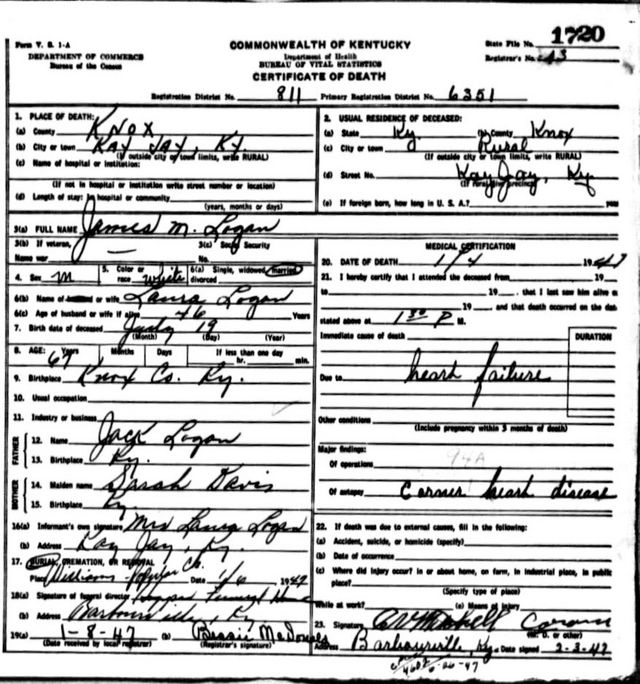 Form V. S. 1-A
DEPARTMENT OF COMMERCE
Bureau of the Census
COMMONWEALTH OF KENTUCKY
Department of Health
BUREAU OF VITAL STATISTICS
CERTIFICATE OF DEATH
State File No. 1720
Registrar's No. 43
Registration District No. 811 Primary Registration District No. 6351
1. PLACE OF DEATH:
(a) County Knox
(b) City or town Kay Jay, Ky.
(If outside city or town limits, write RURAL)
(c) Name of hospital or institution:
(If not in hospital or institution write street number or location)
(d) Length of stay: In hospital or community
(years, months or days)
2. USUAL RESIDENCE OF DECEASED:
(a) State Ky. (b) County Knox
(c) City or town Rural
(If outside city or town limits, write RURAL)
(d) Street No. Kay Jay, Ky
(If rural give precinct)
(e) If foreign born, how long in U. S. A.? years
3(a) FULL NAME James M. Logan
3(b) If veteran, 3(c) Social Security
Name war — No.
4. Sex M 5. Color or race White 6(a) Single, widowed, married divorced
6(b) Name of husband or wife Laura Logan
6(c) Age of husband or wife if alive 46 Years
7. Birth date of deceased July 19
(Month) (Day) (Year)
8. AGE: Years 67 Months Days If less than one day
hr. min.
9. Birthplace Knox Co. Ky.
10. Usual occupation
11. Industry or business
FATHER
12. Name Jack Logan
13. Birthplace Ky.
MOTHER
14. Maiden name Sarah Davis
15. Birthplace Ky.
16(a) Informant's own signature Mrs Laura Logan
(b) Address Kay Jay, Ky.
17. BURIAL, CREMATION, OR REMOVAL
Place Co. Date 1/6 1947
18(a) Signature of funeral director Funeral Home
(b) Address Barbourville, Ky
19(a) 1-8-47 (b) Bessie McDowes
(Date received by local registrar) (Registrar's signature)
MEDICAL CERTIFICATION
20. DATE OF DEATH 1/4 1947
21. I hereby certify that I attended the deceased from 19
to 19 , that I last saw him alive on
19 and that death occurred on the date
stated above at 1 30 P M.
Immediate cause of death DURATION
Due to heart failure
Other conditions
(Include pregnancy within 3 months of death)
Major findings: 94A
Of operations
Of autopsy Corner heart disease
22. If death was due to external causes, fill in the following:
(a) Accident, suicide, or homicide (specify)
(b) Date of occurrence
(c) Where did injury occur? in or about home, on farm, in industrial place, in public
place?
(Specify type of place)
While at work? (e) Means of injury
23. Signature Mitchell Coroner
(M. D. or other)
Address Barbourville, Ky Date signed 2-3-47